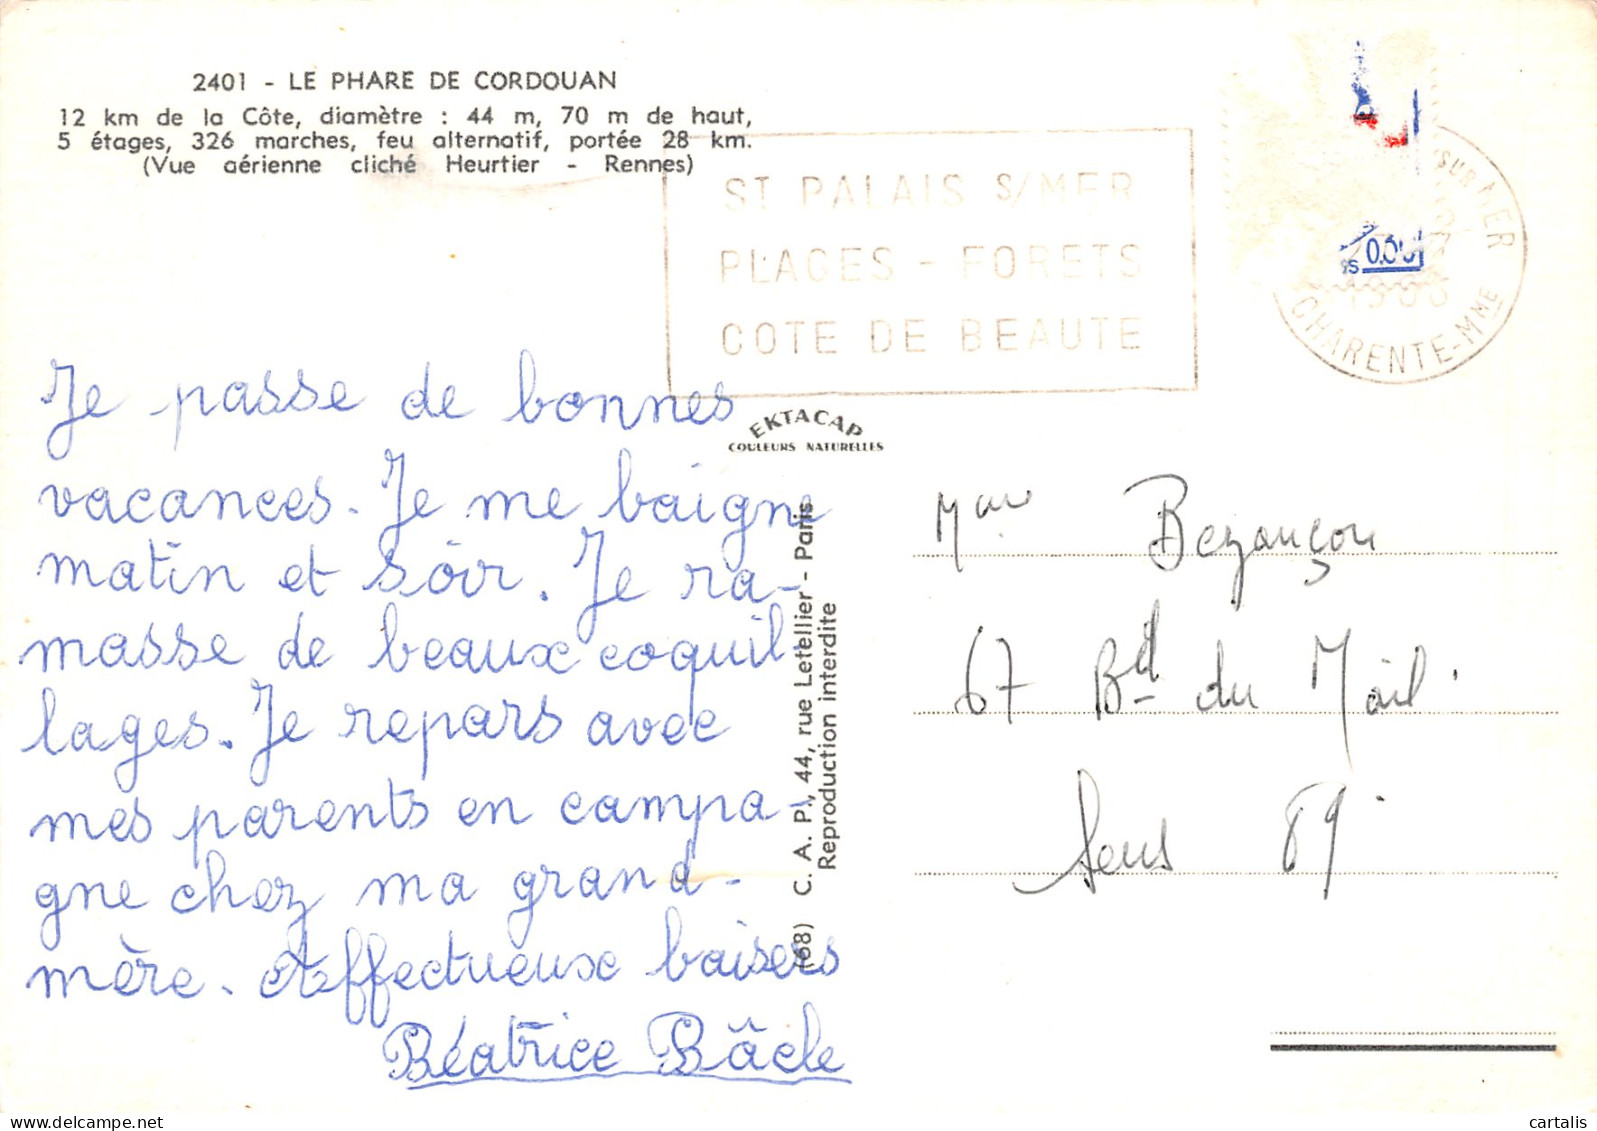 2401 - LE PHARE DE CORDOUAN
12 km de la Côte, diamètre : 44 m, 70 m de haut,
5 étages, 326 marches, feu alternatif, portée 28 km.
(Vue aérienne cliché Heurtier - Rennes)
ST PALAIS S/MER
PLAGES - FORETS
COTE DE BEAUTE
SUR MER
CHARENTE-MME
0.30
EKTACAP
COULEURS NATURELLES
Je passe de bonnes
vacances. Je me baigne
matin et soir. Je ra-
masse de beaux coquil-
lages. Je repars avec
mes parents en campa-
gne chez ma grand-
mère. Affectueux baisers
Béatrice Bâcle
(68) C. A. P., 44, rue Letellier - Paris
Reproduction interdite
Bezançon
67 Bd du Mail
Sens 89
cartalis